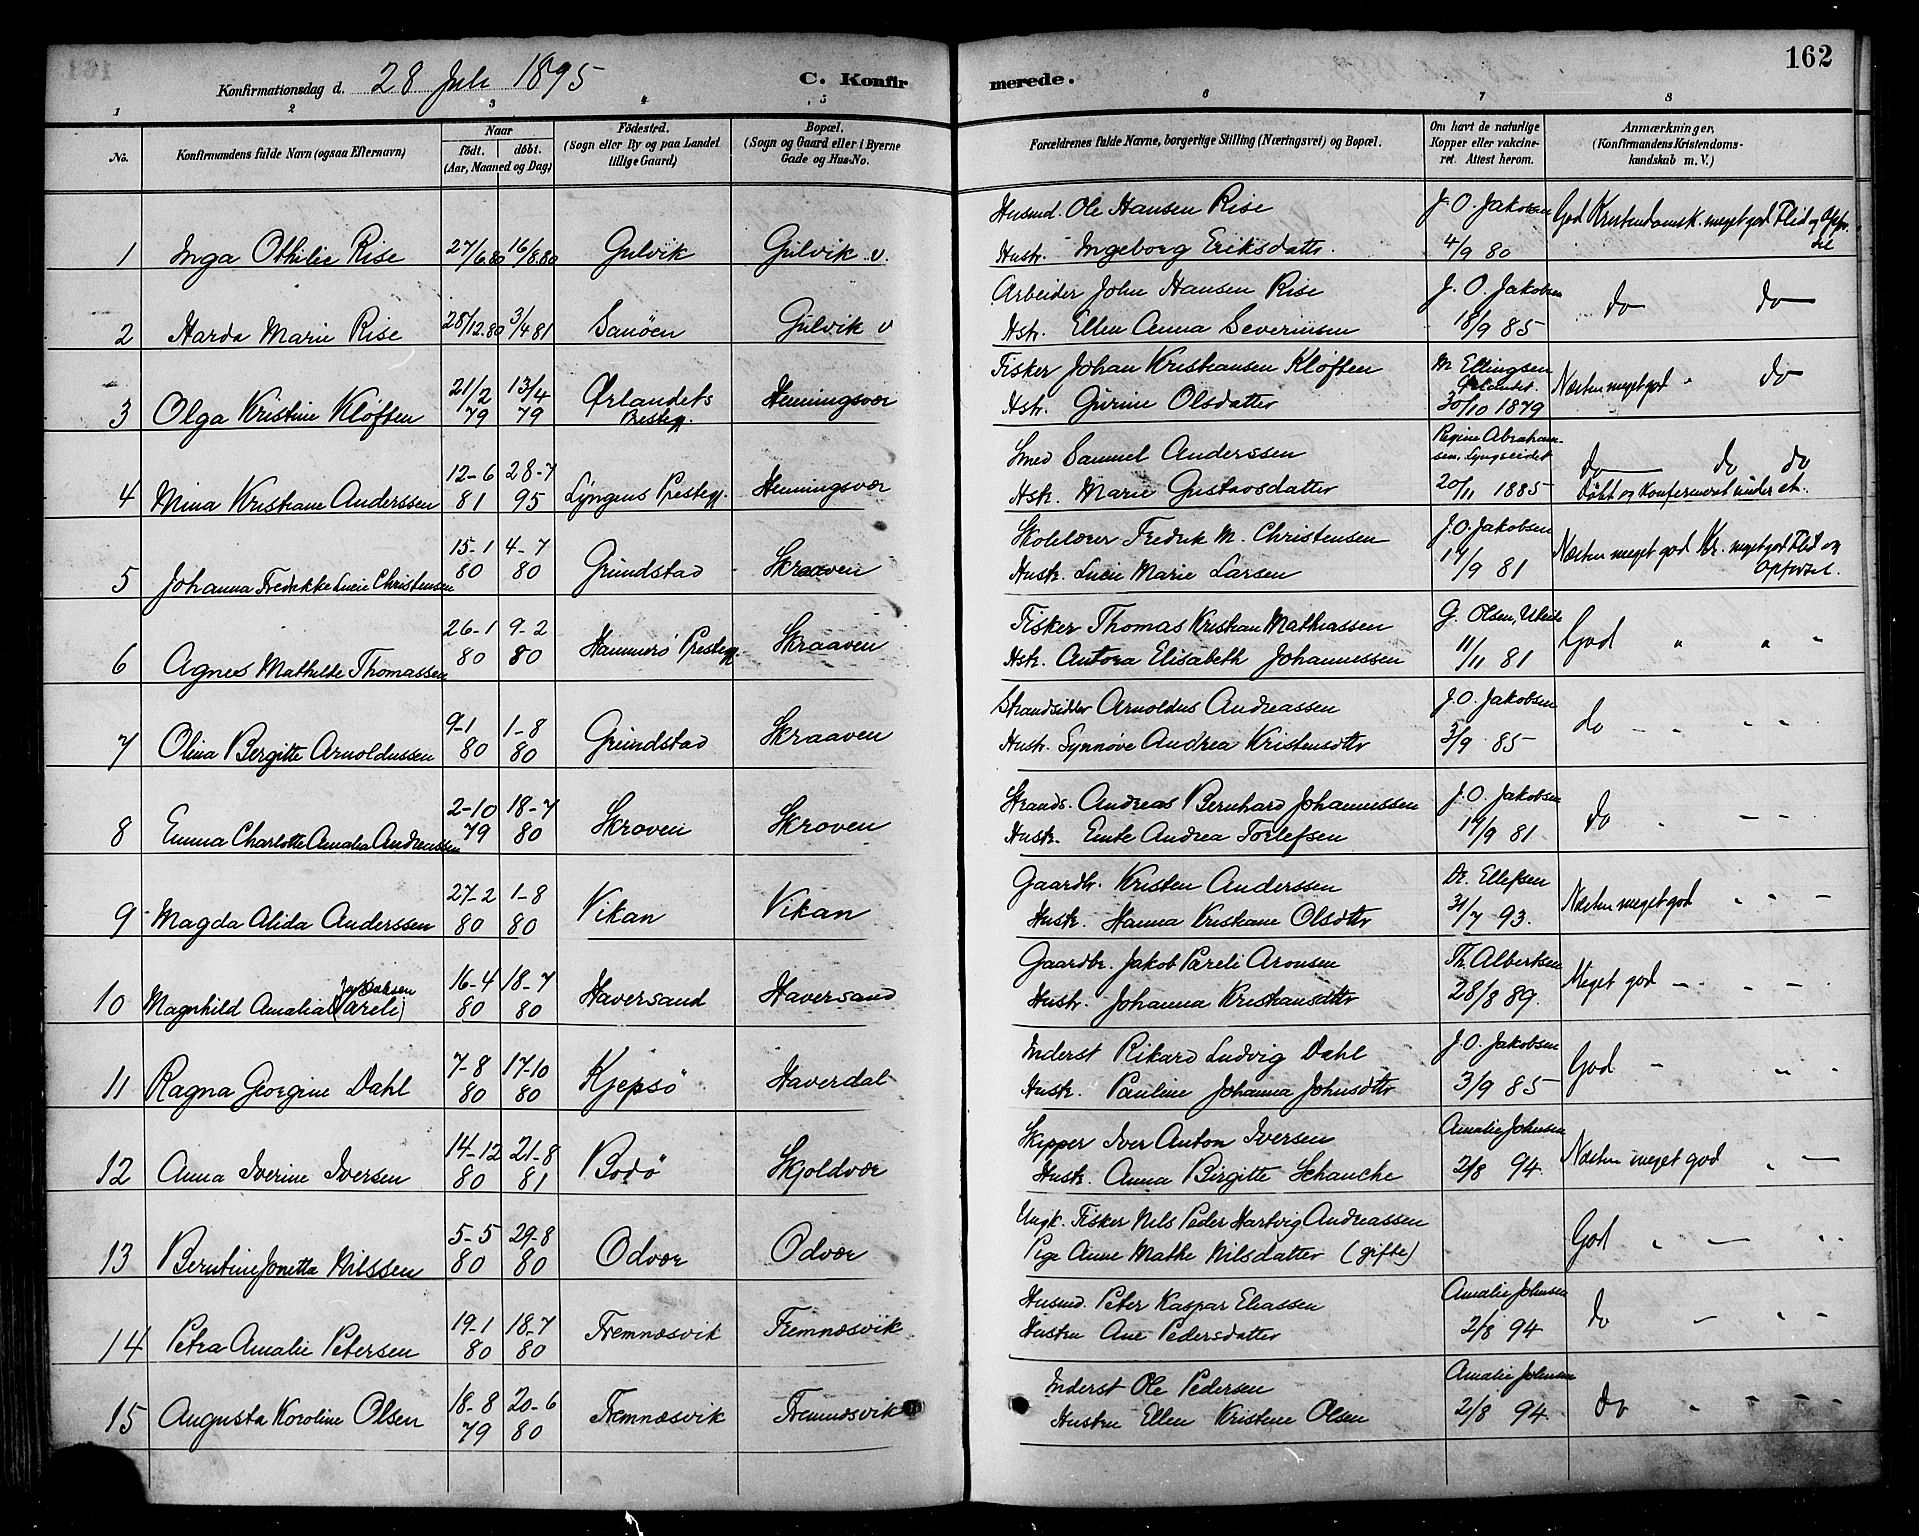 162
Konfirmationsdag d. 28 Juli 1895 C. Konfirmerede.
1 2 3 4 5 6 7 8
No. Konfirmandens fulde Navn (ogsaa Efternavn) Naar født. døbt. (Aar, Maaned og Dag) Fødested. (Sogn eller By og paa Landet tillige Gaard) Bopæl. (Sogn og Gaard eller i Byerne Gade og Hus-No. Forældrenes fulde Navne, borgerlige Stilling (Næringsvei) og Bopæl. Om havt de naturlige Kopper eller vakcineret. Attest herom. Anmærkninger, (Konfirmandens Kristendomskundskab m. V.)
Husmd. Ole Hansen Rise J. O. Jakobsen God Kristendomsk. meget god Flid og
1 Inga Othilie Rise 27/6.80 16/8.80 Gulvik Gulvik v. Hustr. Ingeborg Eriksdattr. 4/9 80
Arbeider John Hansen Rise J. O. Jakobsen do do
2 Harda Marie Rise 28/12.80 3/4 81 Sanöen Gulvik v Hstr. Ellen Anna Severinsen 18/9 85
Fisker Johan Kristiansen Kløften M. Ellingsen Ørlandet
3 Olga Kristine Kløften 21/2 79 13/4 79 Ørlandets Prestegj. Henningsvær Hstr. Gurine Olsdatter 30/10 1879 Næsten meget god " do
Smed Samuel Anderssen Regine Abrahamsen, Lyngseidet
4 Mina Kristiane Anderssen 12-6 81 28-7 95 Lyngens Prestegj. Henningsvær Hstr. Marie Gustavsdatter 20/11 1885 do do do
Døbt og Konfirmeret under et.
Skolelærer Fredrik M. Christensen J. O. Jakobsen
5 Johanna Fredrikke Lucie Christensen 15-1 80 4-7 80 Grundstad Skraaven Hustr. Lucie Marie Larsen 17/9 81 Næsten meget god Kr. meget god Flid og Opførsel.
Fisker Thomas Kristian Mathiassen G. Olsen,
6 Agnes Mathilde Thomassen 26-1 80 9-2 80 Hammerø Prestegj. Skraaven Hstr. Antora Elisabeth Johannessen 11/11 81 God " " "
Strandsidder Arnoldus Andreassen J. O. Jakobsen
7 Olina Bergitte Arnoldussen 9-1 80 1-8 80 Grundstad Skraaven Hustr. Synnøve Andrea Kristensdttr 3/9 85 do - - - -
Strands. Andreas Bernhard Johannessen J. O. Jakobsen
8 Emma Charlotte Amalia Andreassen 2-10 79 18-7 80 Skroven Skroven Hustr. Emte Andrea Torlefsen 17/9 81 do - - -
Gaardbr. Kristen Anderssen Dr. Ellefsen
9 Magda Alida Anderssen 27-2 80 1-8 80 Vikan Vikan Hustr. Hanna Kristiane Olsdttr 31/7 93. Næsten meget god " " -
Gaardbr. Jakob Pareli Aronsen Th. Albertsen
10 Magnhild Amalia Jakobsen (Pareli) 16-4 80 18-7 80 Haversand Haversand Hustr. Johanna Kristiansdttr 28/8 89. Meget god - - - -
Inderst Rikard Ludvig Dahl J. O. Jakobsen
11 Ragna Georgine Dahl 7-8 80 17-10 80 Kjepsö Haverdal Hustr. Pauline Johanna Johnsdttr 3/9 85 God " " "
Skipper Iver Anton Iversen Amalie Johnsen
12 Anna Iverine Iversen 14-12 80 21-8 81 Bodö Skjoldvær Hustr. Anna Birgitte Schanche 2/8 94. Næsten meget god " -
Ungk. Fisker Nils Peder Hartvig Andreassen
13 Berntine Jonetta Nilssen 5-5 80 29-8 80 Odvær Odvær Pige Anne Mathe Nilsdatter (gifte) God " - " "
Husmd. Peter Kaspar Eliassen Amalie Johnsen
14 Petra Amalie Petersen 19-1 80 18-7 80 Fremnæsvik Fremnæsvik Hustru Ane Pedersdatter 2/8 94 do - " -
Inderst Ole Pedersen Amalie Johnsen
15 Augusta Karoline Olsen 18-8 79 20-6 80 Fremnæsvik Fremnæsvik Hustru Ellen Kristine Olsen 2/8 94. do " " " "